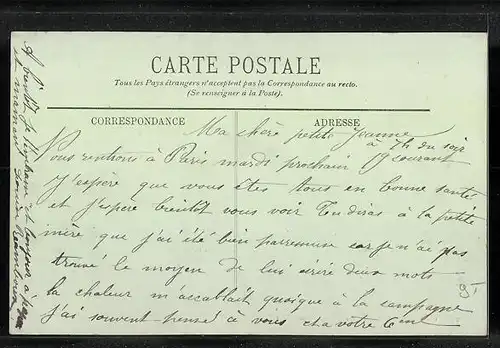 CARTE POSTALE
Tous les Pays étrangers n'acceptent pas la Correspondance au recto.
(Se renseigner à la Poste).
CORRESPONDANCE
ADRESSE
Ma chère petite Jeanne
à 7h du soir
Vous rentrons à Paris mardi prochain 19 courant
J'espère que vous êtes tous en bonne santé
et j'espère bientôt vous voir Tu diras à la petite
mère que j'ai été bien paresseuse car je n'ai pas
trouvé le moyen de lui écrire deux mots
la chaleur m'accablait quoique à la campagne
J'ai souvent pensé à vous
A bientôt je
et maman